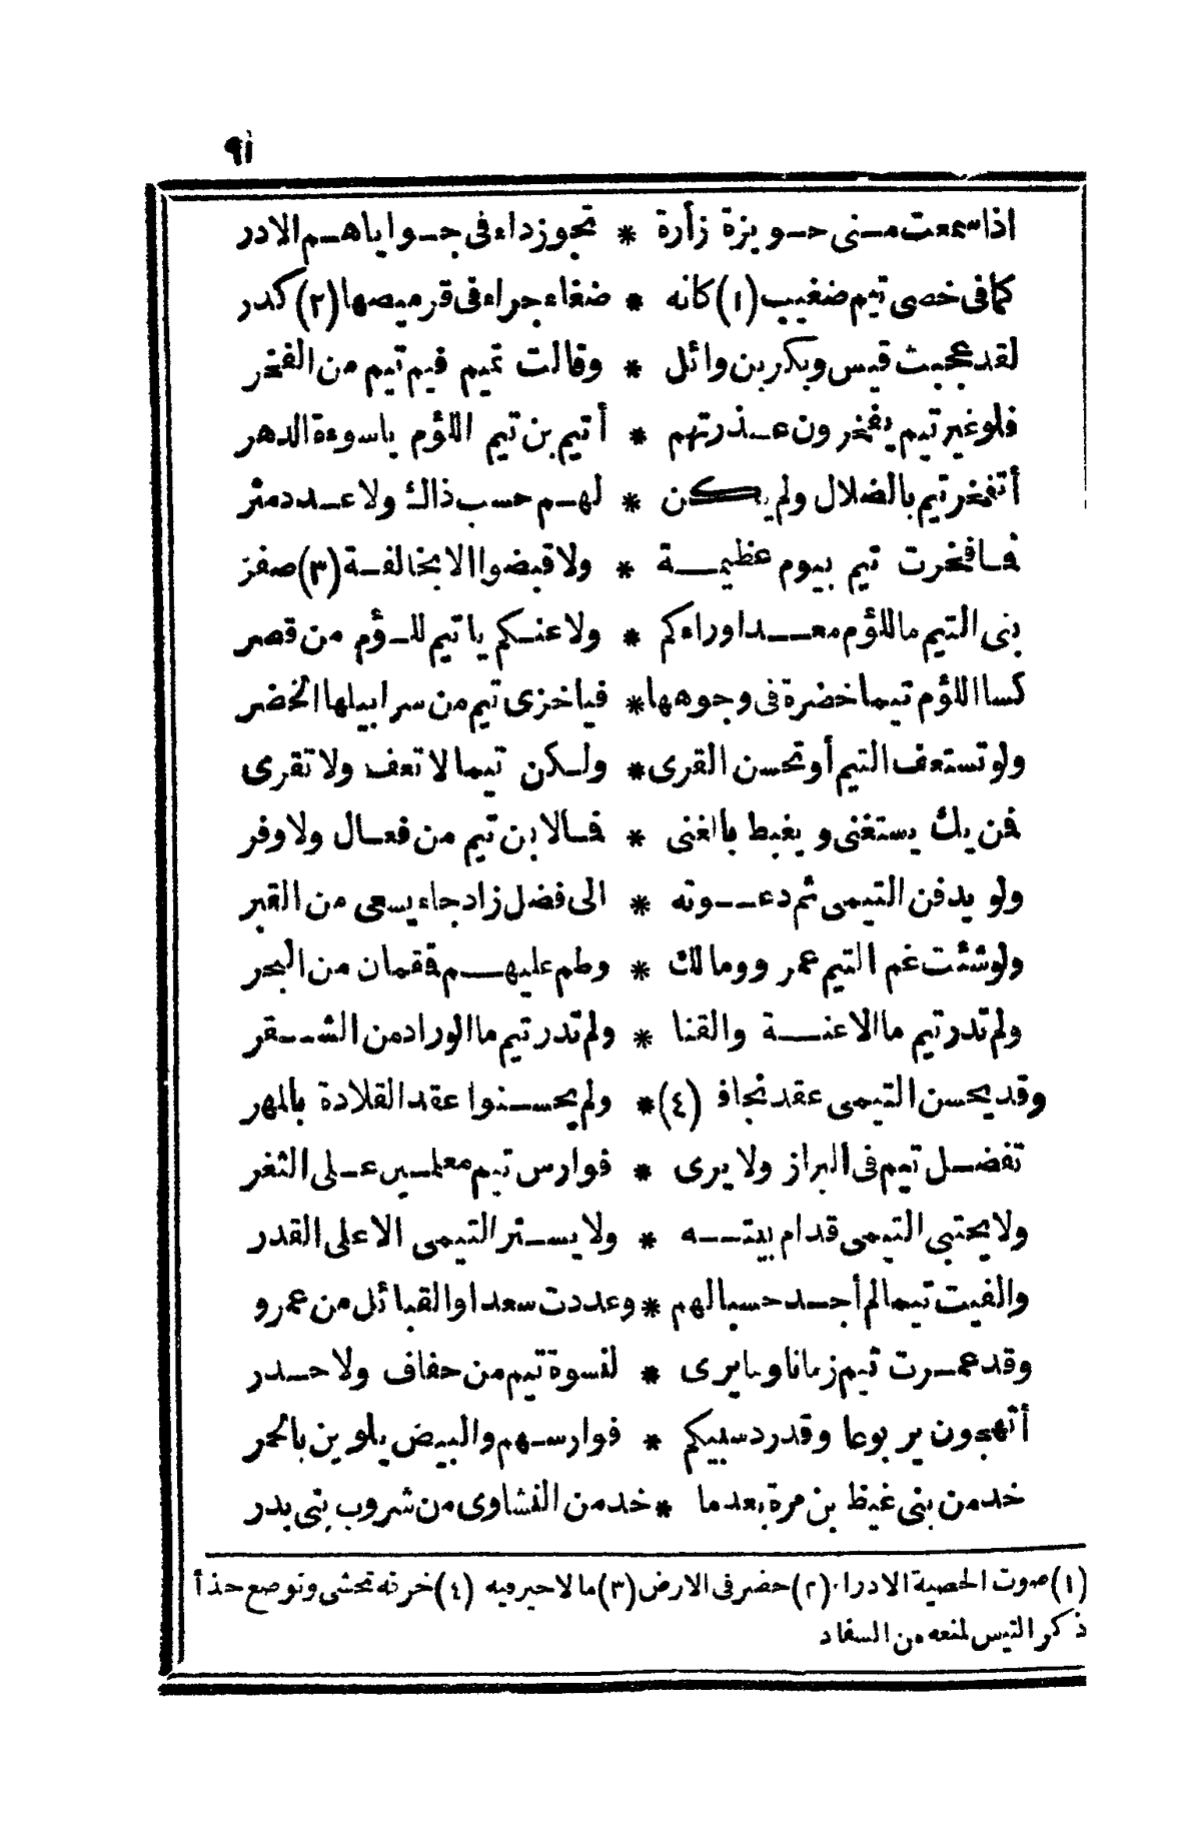 ٩١
اذا سمعت منى حويزة زأرة * تجوز داء فى جوا ياهم الادر
كما فى خصى تيم ضغيب (١) كانه * ضغاء جراء فى قرميصها (٢) كدر
لقد عجبت قيس وبكر بن وائل * وقالت تميم فيم تيم من الفخر
فلو غير تيم يفخرون عذرتهم * أتيم بن تيم اللؤم ياسوءة الدهر
أتفخر تيم بالضلال ولم يكن * لهم حسب ذاك ولا عدد مثر
فما فخرت تيم بيوم عظيمة * ولا قبضوا الا بخالفة (٣) صفر
بنى التيم ما للؤم معدا وراءكم * ولا عنكم يا تيم للؤم من قصر
كسا اللؤم تيما خضرة فى وجوهها * فيا خزى تيم من سرابيلها الخضر
ولو تستعف التيم أو تحسن القرى * ولكن تيما لا تعف ولا تقرى
فمن يك يستغنى ويغبط بالغنى * فما لابن تيم من فعال ولا وفر
ولو يدفن التيمى ثم دعوته * الى فضل زاد جاء يسعى من القبر
ولو شئت غم التيم عمرو ومالك * وطم عليهم قمقمان من البحر
ولم تدر تيم ما الاعنة والقنا * ولم تدر تيم ما الوراد من الشقر
وقد يحسن التيمى عقد نجاف (٤) * ولم يحسنوا عقد القلادة بالمهر
تفضل تيم فى البراز ولا يرى * فوارس تيم معلمين على الثغر
ولا يحتبى التيمى قدام بيته * ولا يستر التيمى الا على القدر
والفيت تيما لم أجد حسبا لهم * وعددت سعدا والقبائل من عمرو
وقد عمرت تيم زمانا وما يرى * لنسوة تيم من حفاف ولا حدر
أتهجون يربوعا وقد رد سبيكم * فوارسهم والبيض يلوين بالخمر
خدمن بنى غيظ بن مرة بعدما * خدمن النشاوى من شروب بنى بدر
(١) صوت الخصية الادراء (٢) حضر فى الارض (٣) ما لا خير فيه (٤) خرقة تحشى وتوضع حذأ
ذكر التيس لمنعه من السفاد